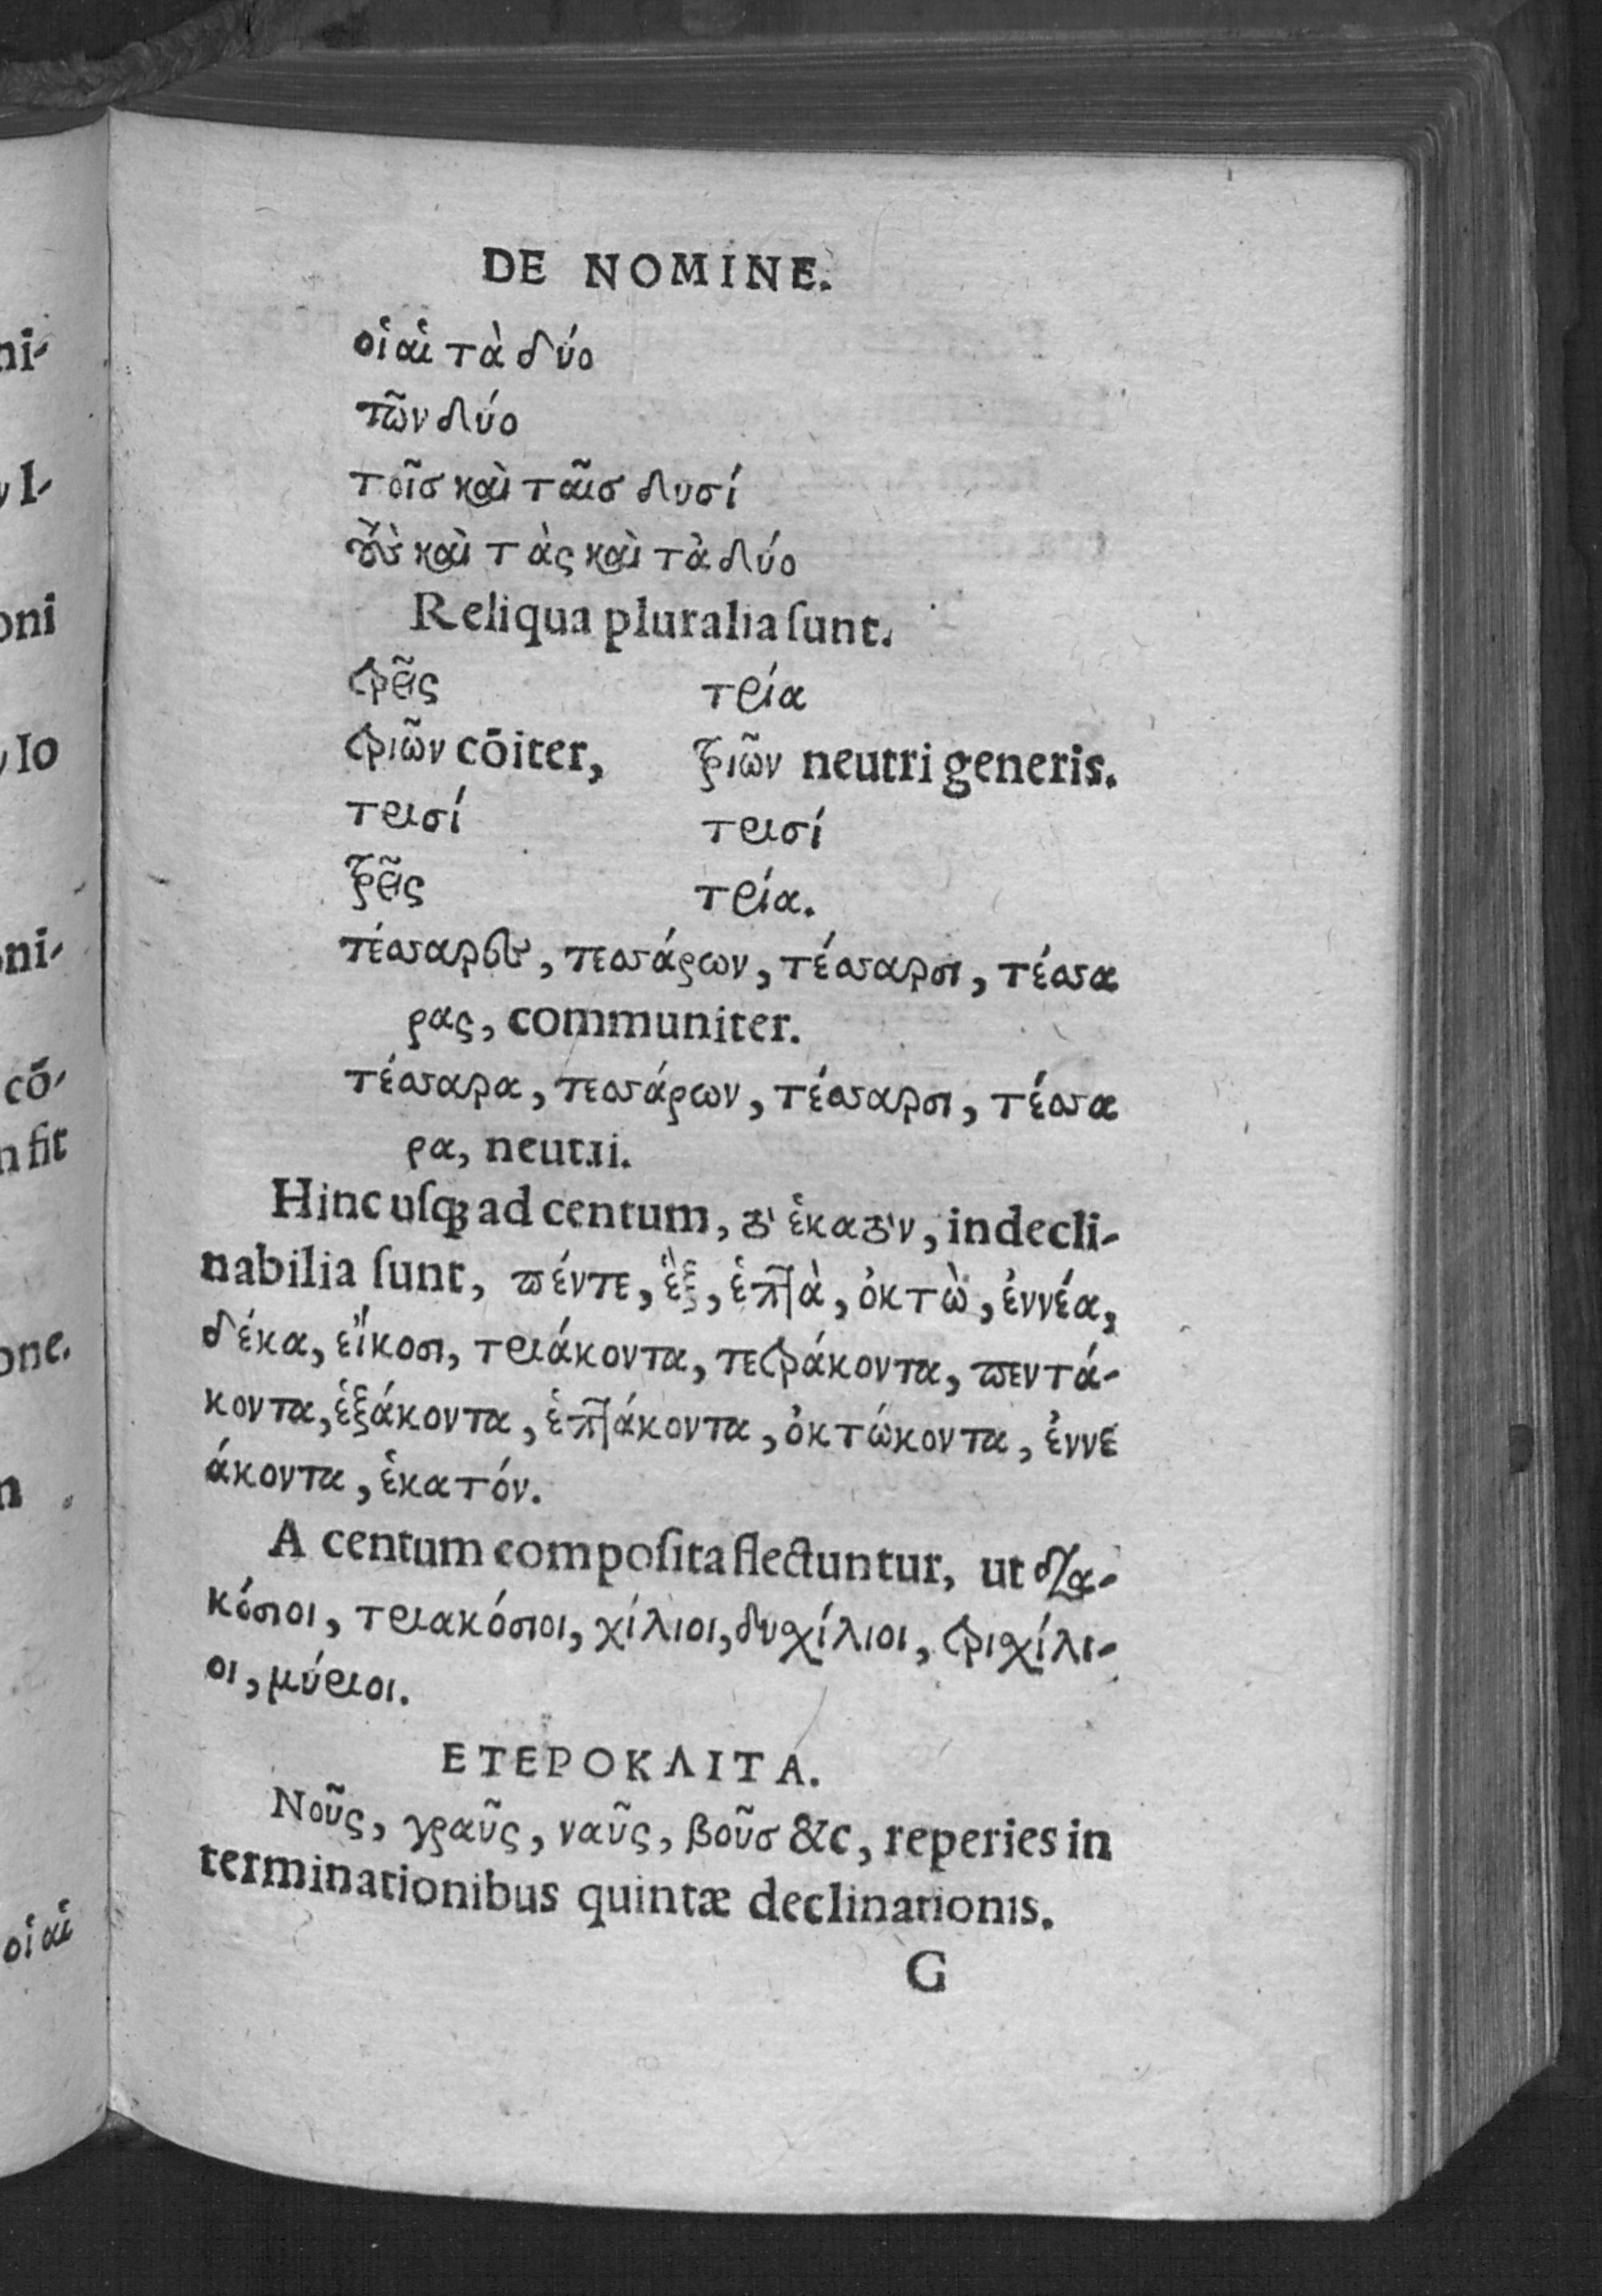 DE NOMINE.
οἱ αἱ τὰ δύο
τῶν δύο
τοῖσ καὶ ταῖσ δυσί
τοὺσ καὶ τὰς καὶ τὰ δύο
Reliqua pluralia ſunt.
τρεῖς τρία
τριῶν cōiter, τριῶν neutri generis.
τρισί τρισί
τρεῖς τρία.
τέσσαρες, τεσσάρων, τέσσαρσι, τέσσα
ρας, communiter.
τέσσαρα, τεσσάρων, τέσσαρσι, τέσσα
ρα, neutri.
Hinc uſq; ad centum, τὸ ἑκατὸν, indecli-
nabilia ſunt, πέντε, ἓξ, ἑπτὰ, ὀκτὼ, ἐννέα,
δέκα, εἴκοσι, τριάκοντα, τετράκοντα, πεντά-
κοντα, ἑξάκοντα, ἑπτάκοντα, ὀκτώκοντα, ἐννε
άκοντα, ἑκατόν.
A centum compoſita flectuntur, ut δια-
κόσιοι, τριακόσιοι, χίλιοι, δυχίλιοι, τριχίλι-
οι, μύριοι.
ΕΤΕΡΟΚΛΙΤΑ.
Νοῦς, γραῦς, ναῦς, βοῦσ &c, reperies in
terminationibus quintæ declinationis.
G
ni-
oni
Io
ni-
cō-
fit
one.
οἱ αἱ